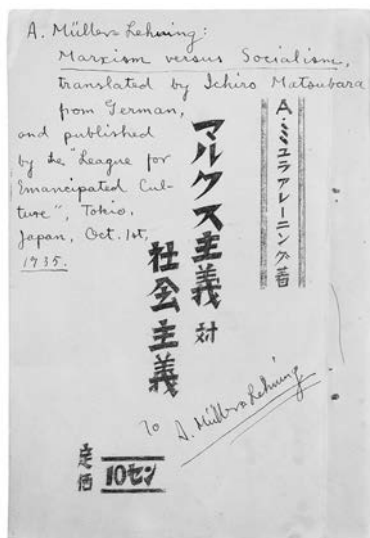 A. Müller Lehning:
Marxism versus Socialism,
translated by Ichiro Matsubara
from German,
and published
by the "League for
Emancipated Cul-
ture", Tokio,
Japan, Oct. 1st,
1935.
A・ミュラアレーニング著
マルクス主義 対
社会主義
To A. Müller Lehning
定価 10セン